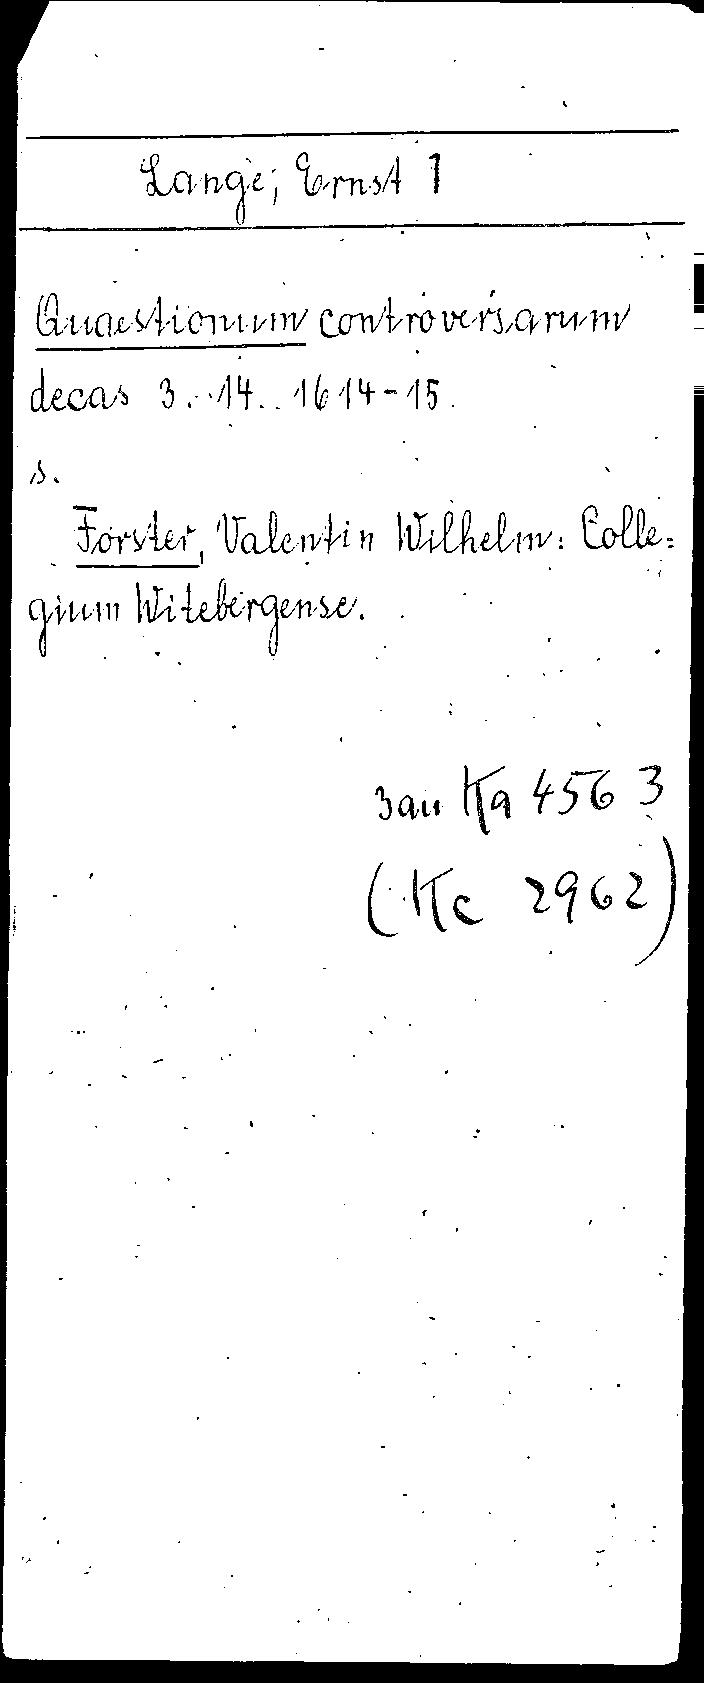 Lange, Ernst 1
Quaestionum controversarum
decas 3. 14. 1614-15.
s.
Forster, Valentin Wilhelm: Colle=
gium Witebergense.
3 an Ka 4563
(Kc 2962)